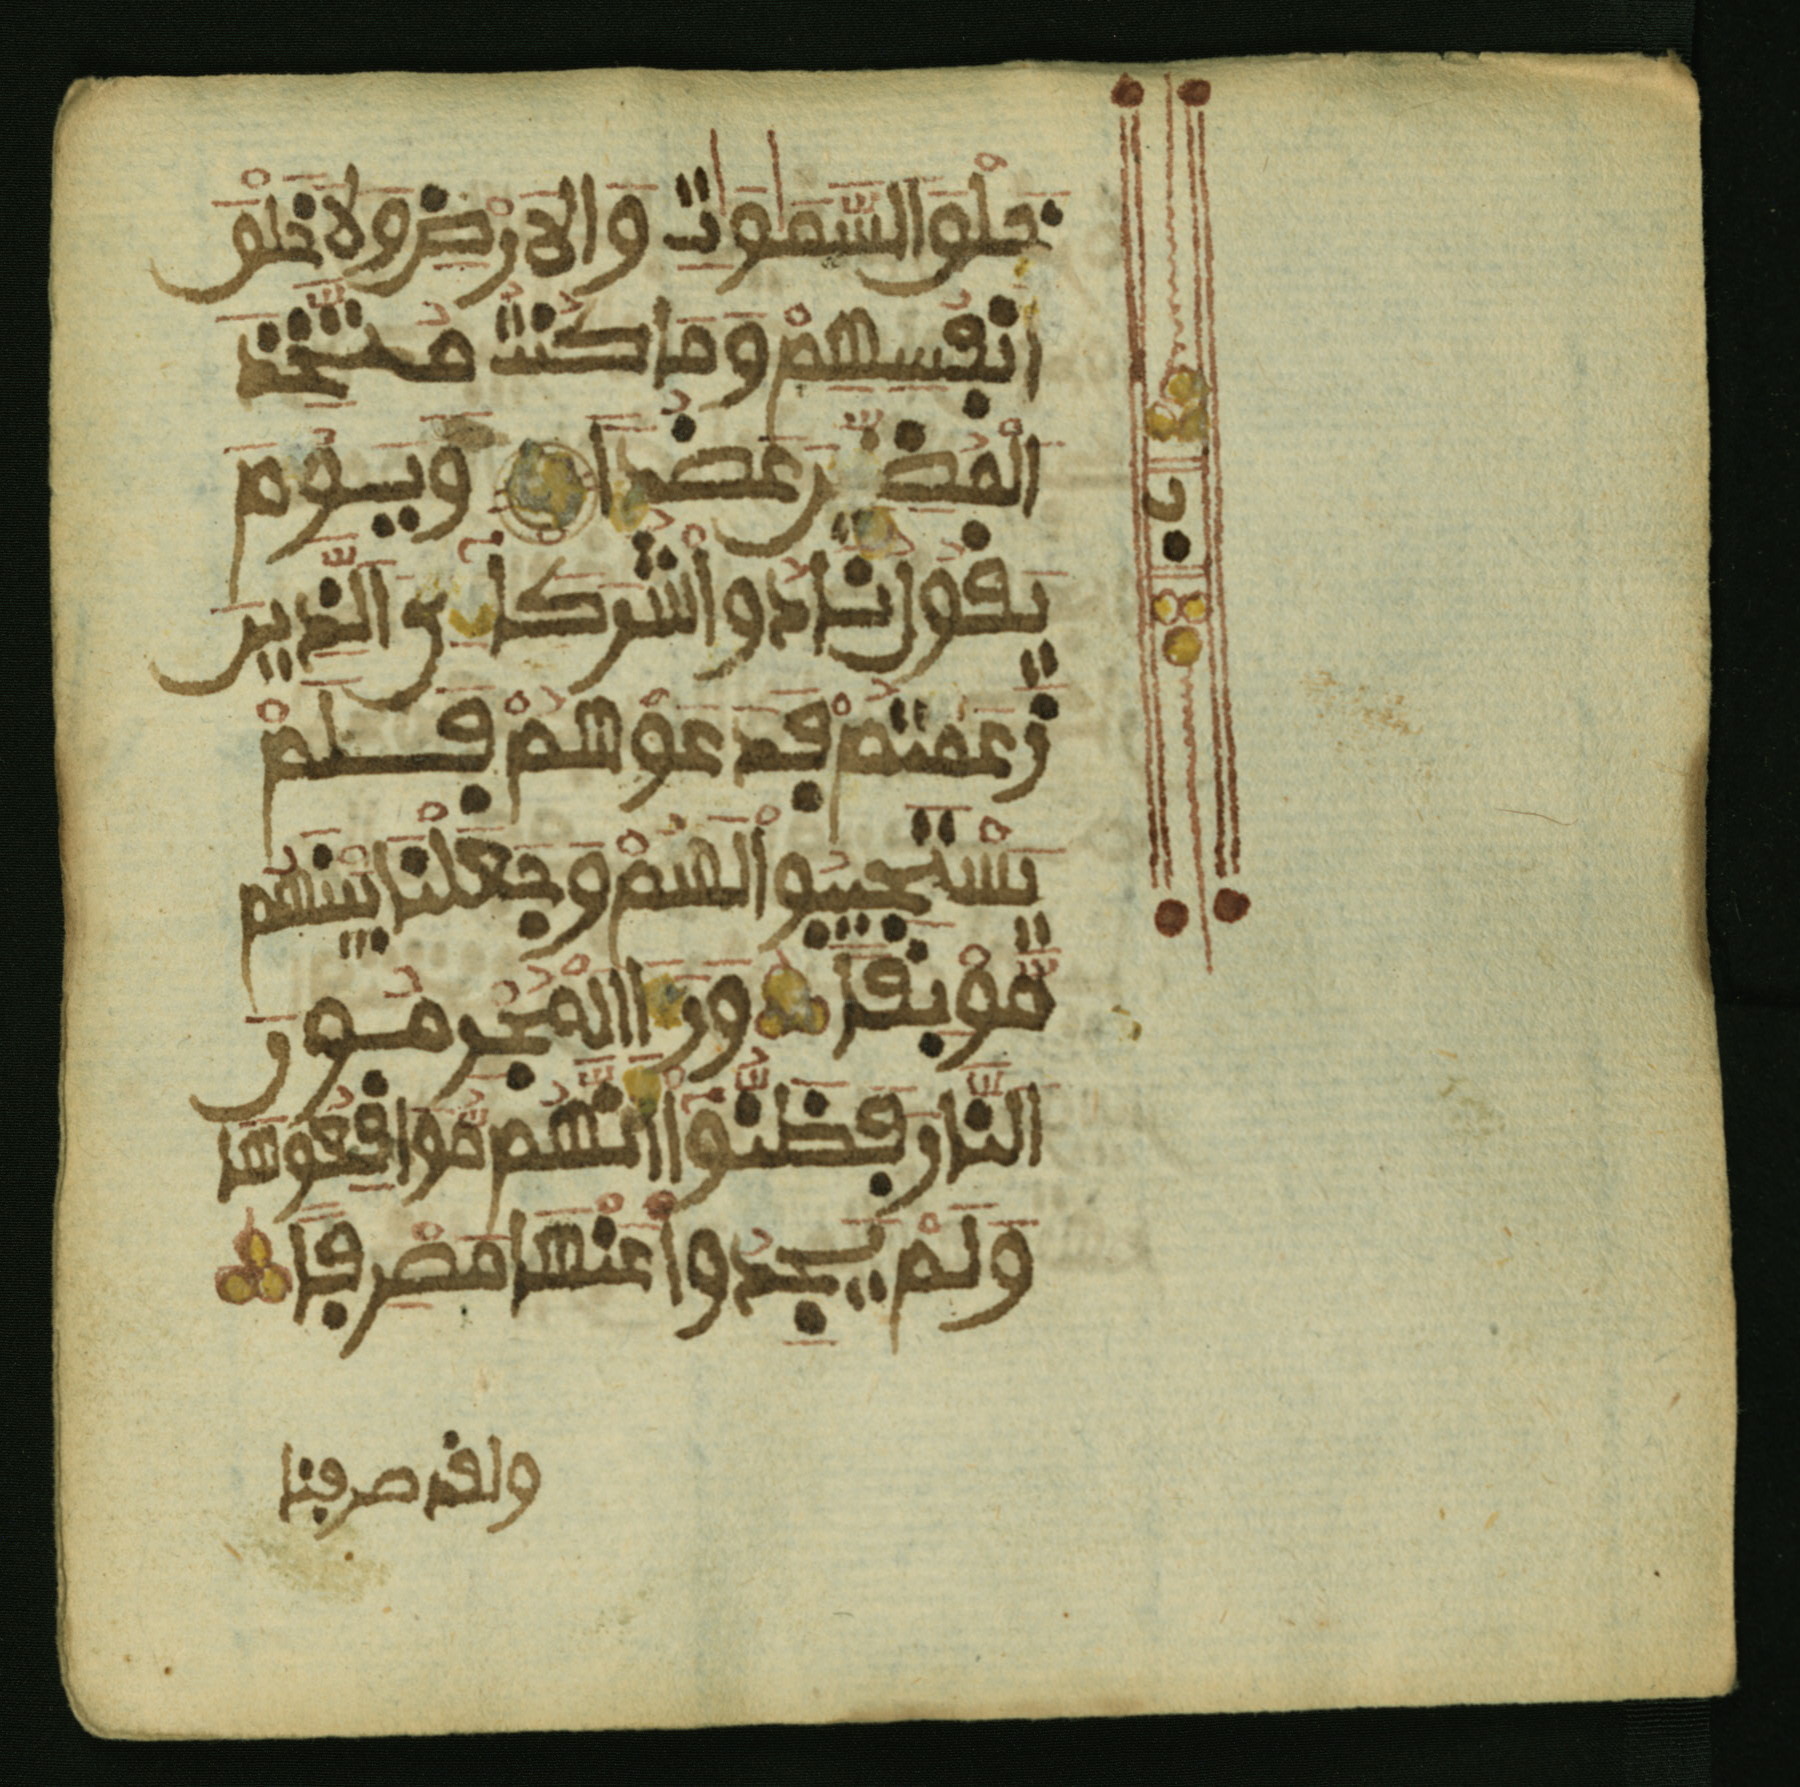 خلق السموت والارض ولا خلق
انفسهم وما كنت متخذ
المضلين عضدا ويوم
يقول نادوا شركاءي الذين
زعمتم فدعوهم فلم
يستجيبوا لهم وجعلنا بينهم
موبقا ورءا المجرمون
النار فظنوا انهم مواقعوها
ولم يجدوا عنها مصرفا
ولقد صرفنا